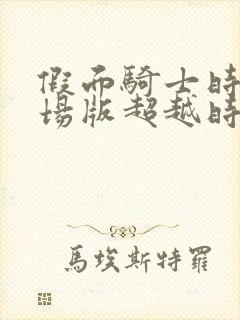 假面騎士時
場版超越時
馬埃斯特羅